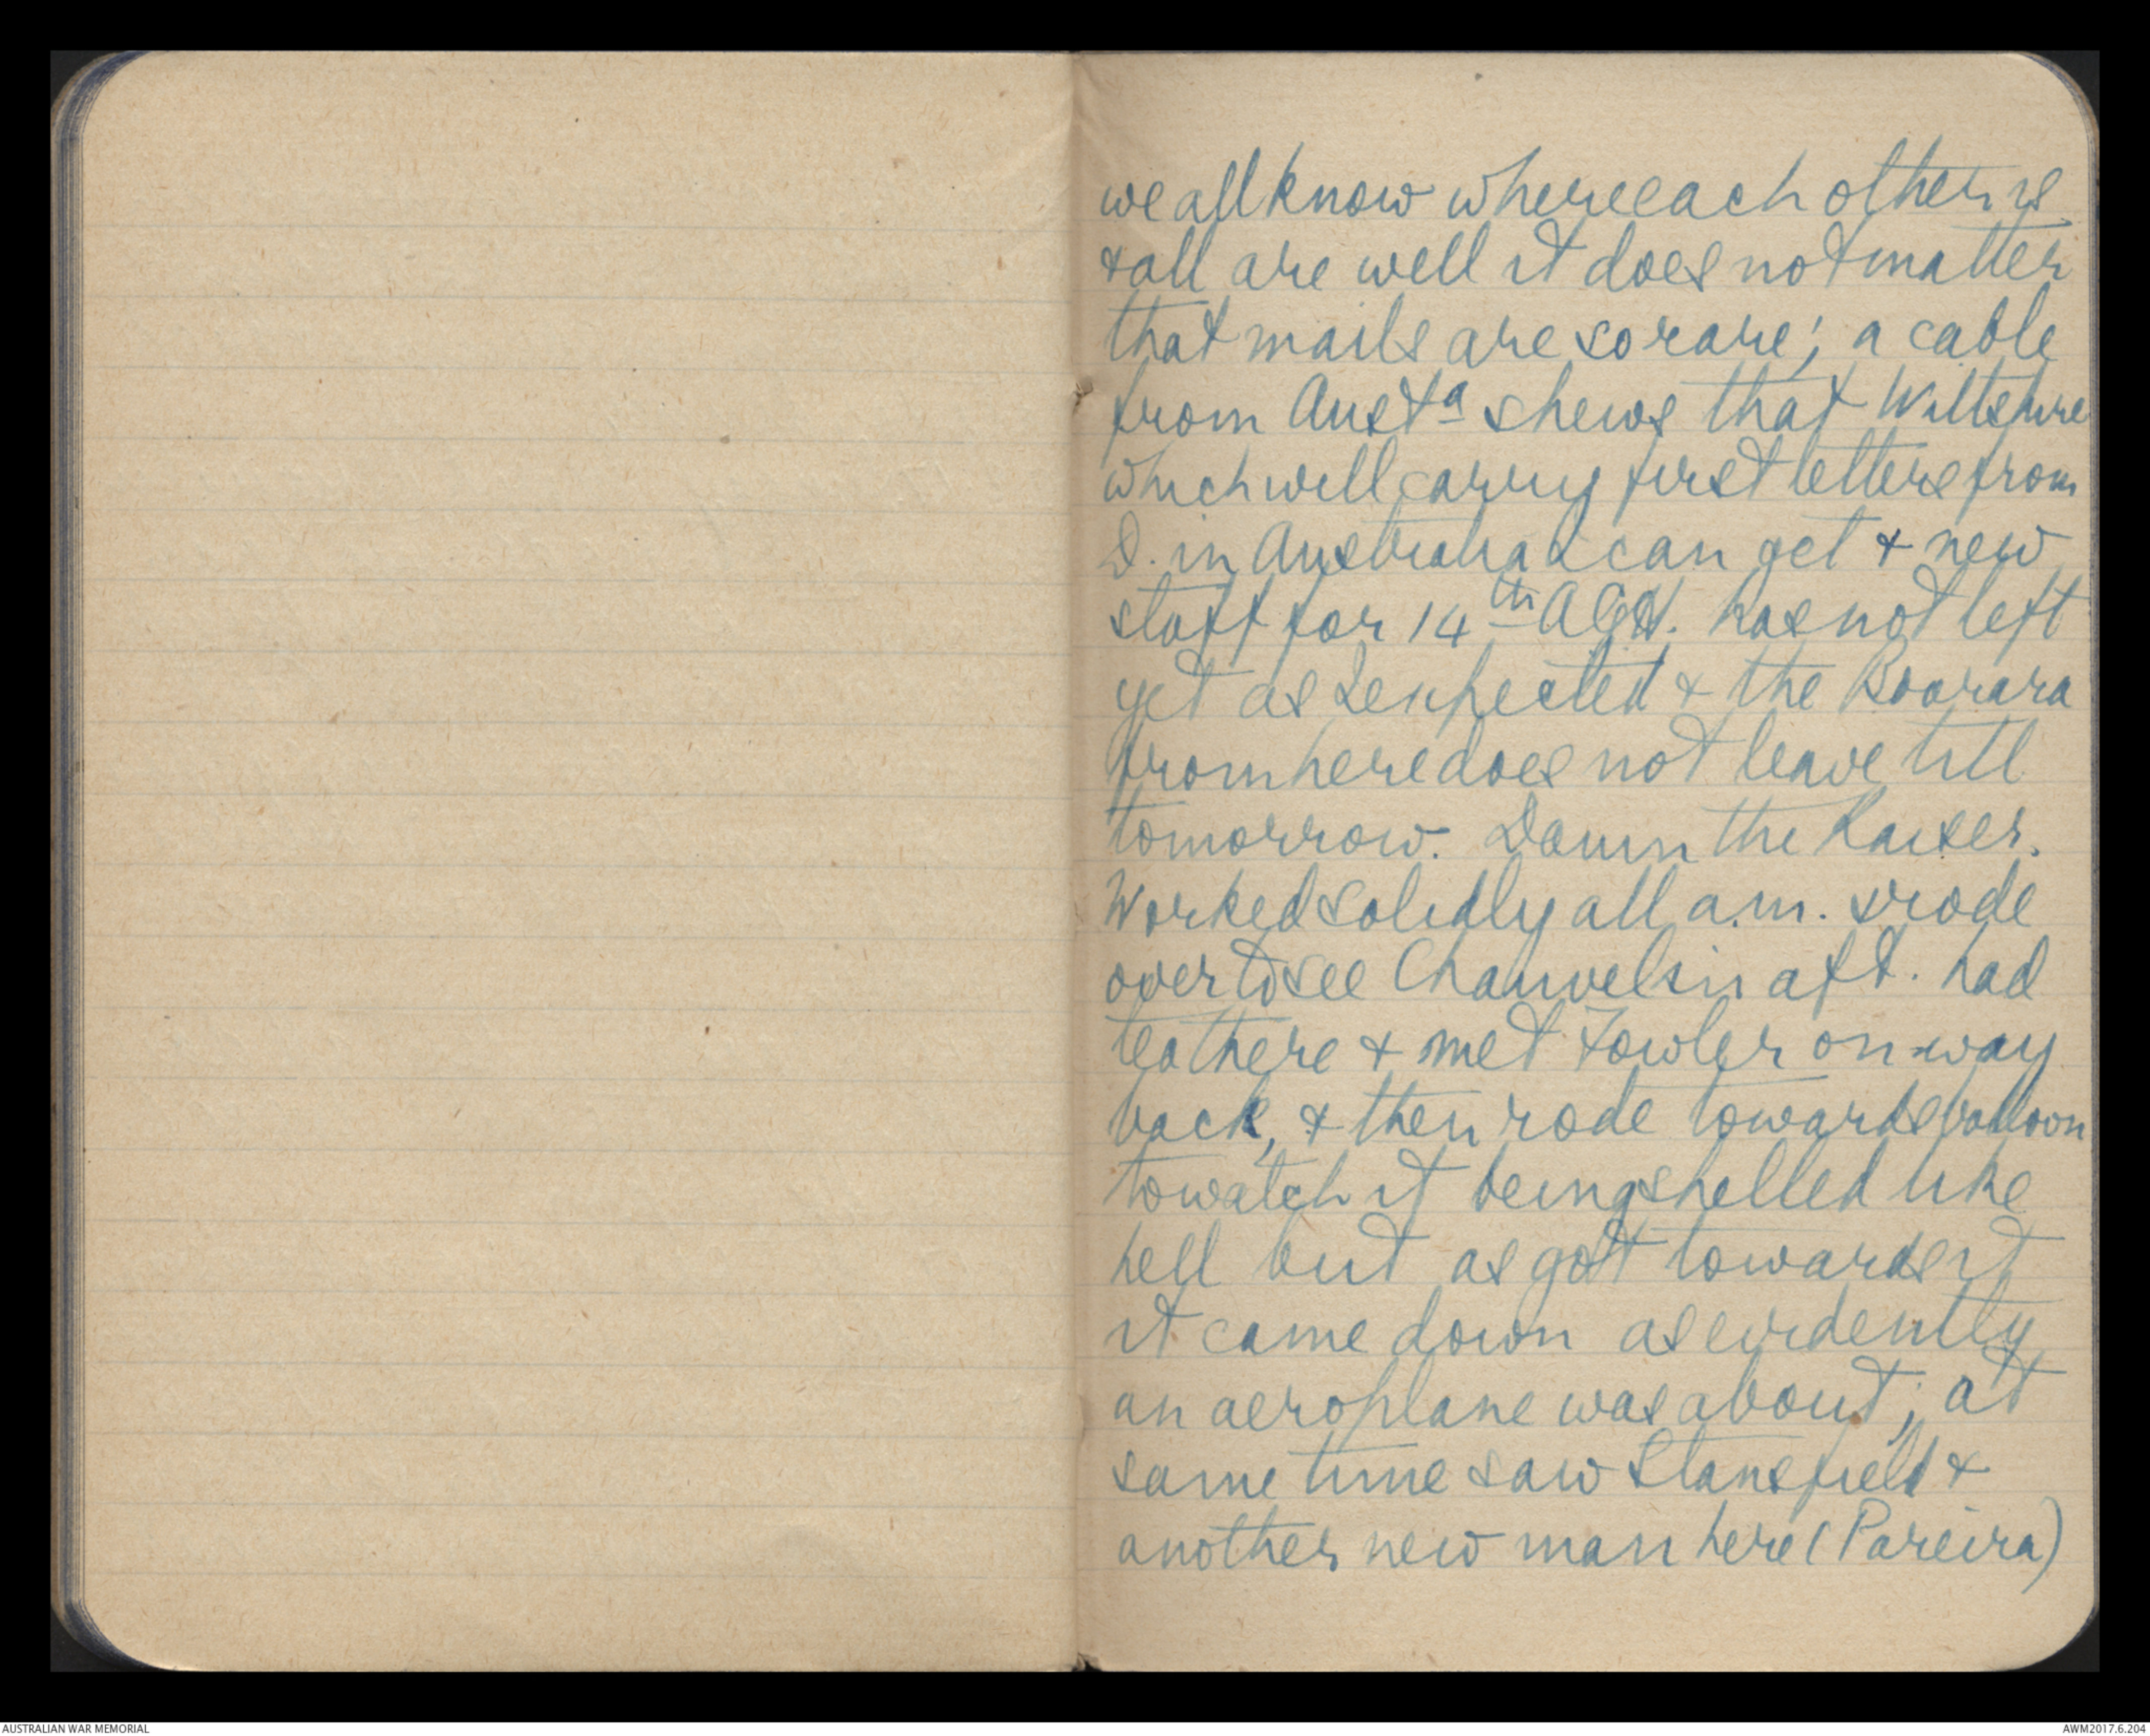 we all know where each other is
& all are well it does not matter
that mails are so rare; a cable
from Austa shews that Wiltshire
which will carry first letters from
D. in Australia I can get & new
staff for 14th AGH. has not left
yet as I expected & the Boorara
from here does not leave till
tomorrow. Damn the Kaiser.
Worked solidly all a.m. & rode
over to see Chauvels in aft. had
tea there & met Fowler on way
back, & then rode towards balloon
to watch it being shelled like
hell but as got towards it
it came down as evidently
an aeroplane was about; at
same time saw Stansfield &
another new man here (Pareira)
AUSTRALIAN WAR MEMORIAL
AWM2017.6.204